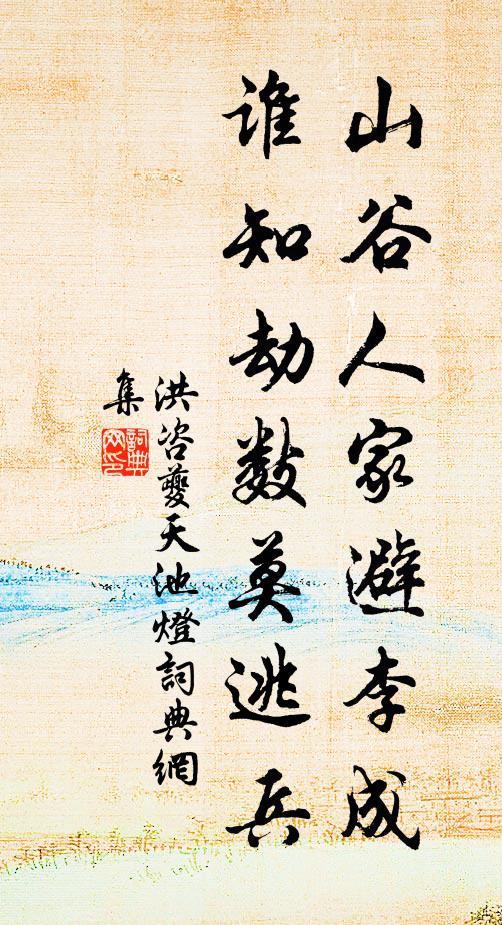 山谷人家避李成
谁知劫数莫逃兵
洪咨夔天池燈詞典網
集
詞典網印